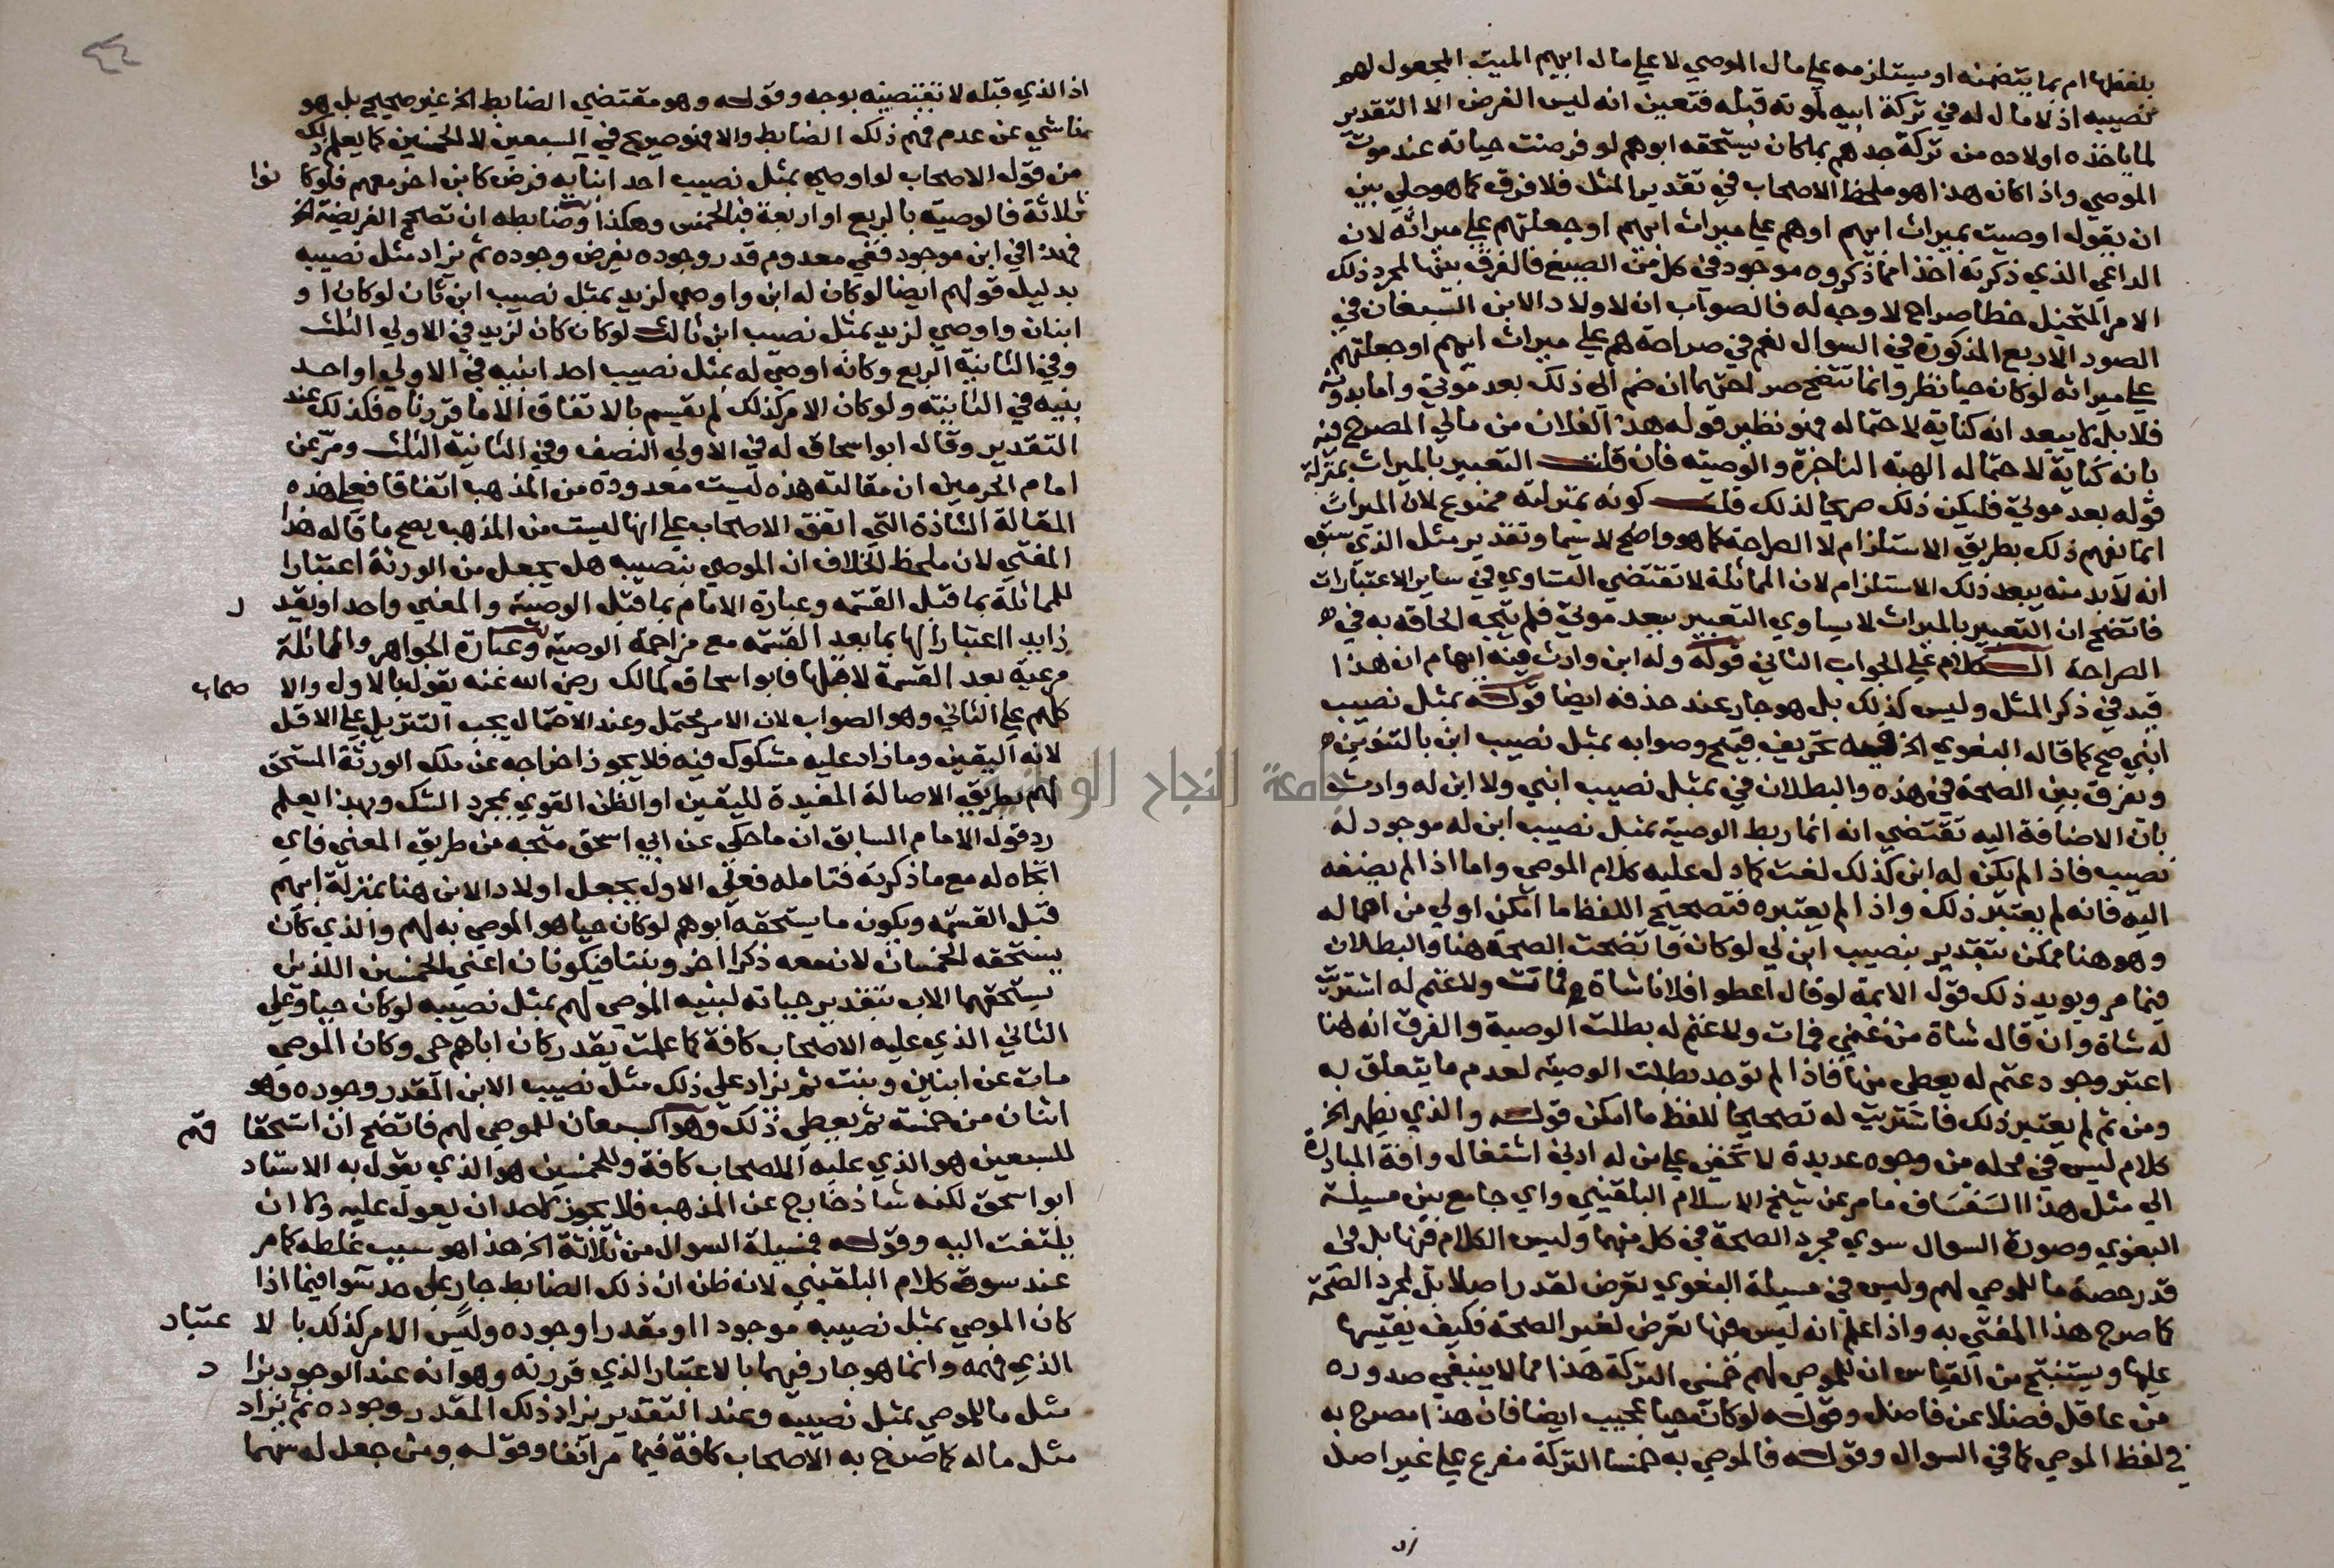 بلفظها ام بما يتضمنه او يستلزمه علي مال الموصي لا علي مال ابيهم الميت المجعول لهم
نصيبه اذ لا مال له في تركة ابيه لموته قبله فتعين انه ليس الغرض الا التقدير
لما ياخذه اولاده من تركة جدهم بما كان يستحقه ابوهم لو فرضت حياته عند موت
الموصي واذا كان هذا هو ملحظ الاصحاب في تقدير المثل فلا فرق كما هو جلي بين
ان يقول اوصيت بميراث ابيهم او هم علي ميراث ابيهم او جعلتهم علي ميراثه لان
الداعي الذي ذكرته اخذا مما ذكروه موجود في كل من الصيغ فالفرق بينها لمجرد ذلك
الامر المتخيل خطا صراح لا وجه له فالصواب ان لاولاد الابن السبعان في
الصور الاربع المذكورة في السوال نعم في صراحة هم علي ميراث ابيهم او جعلتهم
علي ميراثه لو كان حيا نظر وانما تتضح صراحتهما ان ضم الي ذلك بعد موتي واما بدونه
فلا بل لا يبعد انه كناية لاحتماله فهو نظير قوله هذا لفلان من مالي المصرح فيه
بانه كناية لاحتماله الهبة الناجزة والوصية فان قلت التعبير بالميراث بمنزلة
قوله بعد موتي فليكن ذلك صريحا لذلك قلت كونه بمنزلته ممنوع لان الميراث
انما يفهم ذلك بطريق الاستلزام لا الصراحة كما هو واضح لا سيما وتقدير مثل الذي سبق
انه لا بد منه يبعد ذلك الاستلزام لان المماثلة لا تقتضي التساوي في ساير الاعتبارات
فاتضح ان التعبير بالميراث لا يساوي التعبير ببعد موتي فلم يتجه الحاقه به في
الصراحة الكلام علي الجواب الثاني قوله وله ابن وارث فيه ايهام ان هذا
قيد في ذكر المثل وليس كذلك بل هو جار عند حذفه ايضا قوله بمثل نصيب
ابني صح كما قاله البغوي الخ فيه تحريف قبيح وصوابه بمثل نصيب ابن بالتنوين
ويفرق بين الصحة في هذه والبطلان في بمثل نصيب ابني ولا ابن له وارث
بان الاضافة اليه تقتضي انه انما ربط الوصية بمثل نصيب ابن له موجود له
نصيب فاذا لم يكن له ابن كذلك لغت كما دل عليه كلام الموصي واما اذا لم يضفه
اليه فانه لم يعتبر ذلك واذا لم يعتبره فتصحيح اللفظ ما امكن اولي من اهماله
وهو هنا ممكن بتقدير بنصيب ابن لي لو كان فاتضحت الصحة هنا والبطلان
فيما مر ويويد ذلك قول الايمة لو قال اعطوا فلانا شاة فمات ولا غنم له اشتريت
له شاة وان قال شاة من غنمي فمات ولا غنم له بطلت الوصية والفرق انه هنا
اعتبر وجود غنم له يعطي منها فاذا لم توجد بطلت الوصية لعدم ما يتعلق به
ومن ثم لم يعتبر ذلك فاشتريت له تصحيحا للفظ ما امكن قوله والذي يظهر الخ
كلام ليس في محله من وجوه عديدة لا تخفي علي من له ادني اشتغال وافة المبادرة
الي مثل هذا السفساف ما مر عن شيخ الاسلام البلقيني واي جامع بين مسيلة
البغوي وصورة السوال سوي مجرد الصحة في كل منهما وليس الكلام فيها بل في
قدر حصة ما للموصي لهم وليس في مسيلة البغوي تعرض لقدر اصلا بل لمجرد الصحة
كما صرح هذا المفتي به واذا علم انه ليس فيها تعرض لغير الصحة فكيف يقيسها
عليها ويستنتج من القياس ان للموصي لهم خمسي التركة هذا مما لا ينبغي صدوره
من عاقل فضلا عن فاضل وقوله لو كان حيا عجيب ايضا فان هذا مصرح به
في لفظ الموصي كما في السوال وقوله فالموصي به خمسا التركة مفرع علي غير اصل
اذ الذي قبله لا تقتضيه بوجه وقوله وهو مقتضي الضابط الخ غير صحيح بل هو
ناشي عن عدم فهم ذلك الضابط والا فهو صريح في السبعين لا الخمسين كما يعلم ذلك
من قول الاصحاب لو اوصي بمثل نصيب احد ابنايه فرض كابن اخر معهم فلو كانوا
ثلاثة فالوصية بالربع او اربعة فبالخمس وهكذا وضابطه ان تصحح الفريضة الخ
فهذا في ابن موجود ففي معدوم قدر وجوده يفرض وجوده ثم يزاد مثل نصيبه
بدليل قولهم ايضا لو كان له ابن واوصي لزيد بمثل نصيب ابن ثان لو كان او
ابنان واوصي لزيد بمثل نصيب ابن ثالث لو كان كان لزيد في الاولي الثلث
وفي الثانية الربع وكانه اوصي له بمثل نصيب احد ابنيه في الاولي او احد
بنيه في الثانية ولو كان الامر كذلك لم يقسم بالاتفاق الا ما قررناه فكذلك عند
التقدير وقال ابو اسحاق له في الاولي النصف وفي الثانية الثلث ومر عن
امام الحرمين ان مقالته هذه ليست معدودة من المذهب اتفاقا فعلي هذه
المقالة الشاذة التي اتفق الاصحاب علي انها ليست من المذهب يصح ما قاله هذا
المفتي لان ملحظ الخلاف ان الموصي بنصيبه هل يجعل من الورثة اعتبارا
للمماثلة بما قبل القسمة وعبارة الامام بما قبل الوصية والمعني واحد او يقدر
زايدا اعتبارا لها بما بعد القسمة مع مزاحمة الوصية وعبارة الجواهر والمماثلة
مرعية بعد القسمة لا قبلها فابو اسحاق كمالك رضي الله عنه يقول بالاول والاصحاب
كلهم علي الثاني وهو الصواب لان الامر محتمل وعند الاحتمال يجب التنزيل علي الاقل
لانه اليقين وما زاد عليه مشكوك فيه فلا يجوز اخراجه عن ملك الورثة المستحق
لهم بطريق الاصالة المفيدة لليقين او الظن القوي بمجرد الشك وبهذا يعلم
رد قول الامام السابق ان ما حكي عن ابي اسحق متجه من طريق المعني فاي
اتجاه له مع ما ذكرته فتامله فعلي الاول يجعل اولاد الابن هنا بمنزلة ابيهم
قبل القسمة ويكون ما يستحقه ابوهم لو كان حيا هو الموصي به لهم والذي كان
يستحقه الخمسان لان معه ذكرا اخر وبنتا فيكونان اعني الخمسين اللذين
يستحقهما الاب بتقدير حياته لبنيه الموصي لهم بمثل نصيبه لو كان حيا وعلي
الثاني الذي عليه الاصحاب كافة كما علمت يقدر كان اباهم حي وكان الموصي
مات عن ابنين وبنت ثم يزاد علي ذلك مثل نصيب الابن المقدر وجوده وهو
اثنان من خمسة ثم يعطي ذلك وهو السبعان للموصي لهم فاتضح ان استحقاقهم
للسبعين هو الذي عليه الاصحاب كافة وللخمسين هو الذي يقول به الاستاد
ابو اسحق لكنه شاذ خارج عن المذهب فلا يجوز لاحد ان يعول عليه ولا ان
يلتفت اليه وقوله فمسيلة السوال من ثلاثة الخ هذا هو سبب غلطه كما مر
عند سوق كلام البلقيني لانه ظن ان ذلك الضابط جار علي حد سوا فيما اذا
كان الموصي بمثل نصيبه موجودا او مقدرا وجوده وليس الامر كذلك بالاعتبار
الذي فهمه وانما هو جار فيهما بالاعتبار الذي قررته وهو انه عند الوجود يزاد
مثل ما للموصي بمثل نصيبه وعند التقدير يزاد ذلك المقدر وجوده ثم يزاد
مثل ماله كما صرح به الاصحاب كافة فيما مر انفا وقوله ومن جعل له سهما
جامعة النجاح الوطنية